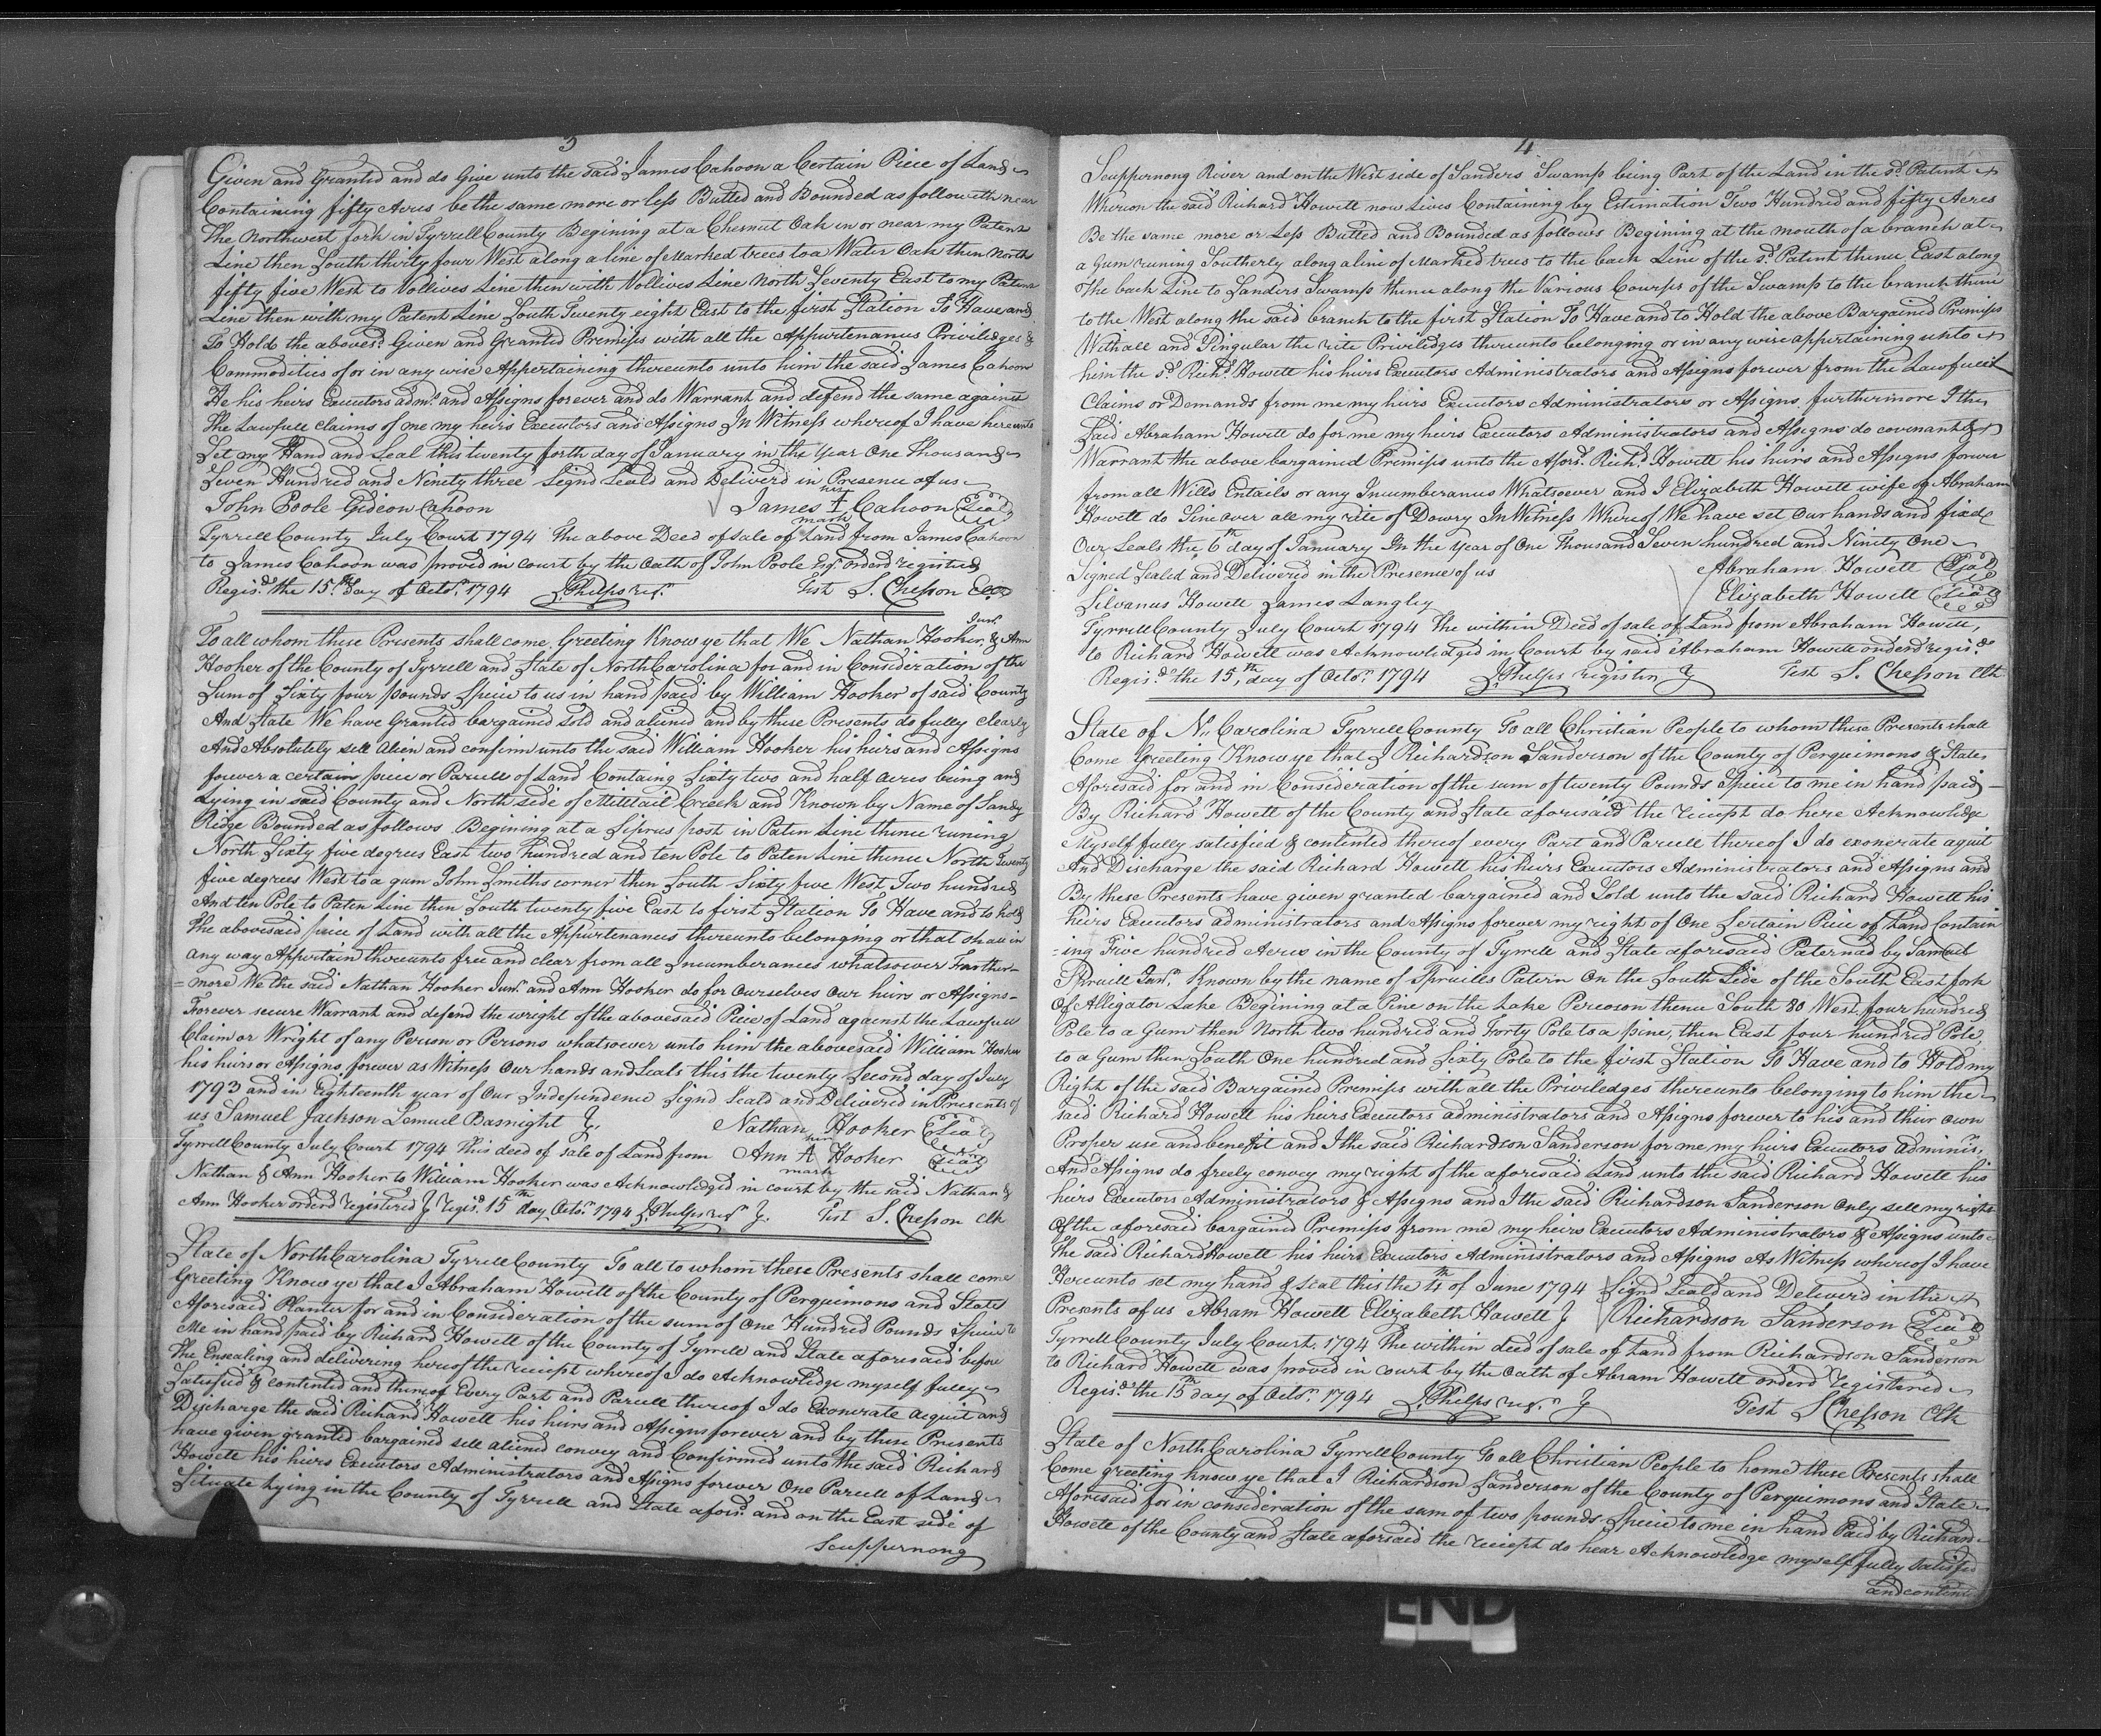 3
Given and Granted and do Give unto the said James Cahoon a Certain Piece of Land
Containing fifty Acres be the same more or less Butted and Bounded as followeth near
The Northwest fork in Tyrrell County Begining at a Chesnut Oak in or near my Patent
Line then South thirty four West along a line of Marked trees to a Water Oak then North
fifty five West to Vollives Line then with Vollives Line North Seventy East to my Patent
Line then with my Patent Line South Twenty eight East to the first Station To Have and
To Hold the aboves.d Given and Granted Premises with all the Appurtenances Priviledges &
Commodities of or in any wise Appertaining thereunto unto him the said James Cahoon
He his heirs Executors adm.s and Assigns forever and do Warrant and defend the same against
The Lawfull claims of me my heirs Executors and Assigns In Witness whereof I have hereunto
Set my Hand and Seal this twenty forth day of January in the Year One Thousand
Seven Hundred and Ninety three Signd Seald and Deliverd in Presence of us
John Poole Gideon Cahoon James his I mark Cahoon Seal
Tyrrell County July Court 1794 The above Deed of sale of Land from James Cahoon
to James Cahoon was proved in court by the Oath of John Poole Esq.r orderd registred
Regis.d the 15.th Day of Octo.r 1794 J. Phelps reg.r Test S. Chesson Clk
To all whom these Presents shall come Greeting Know ye that We Nathan Hooker Jun.r & Ann
Hooker of the County of Tyrrell and State of North Carolina for and in Consideration of the
Sum of Sixty four pounds Specie to us in hand paid by William Hooker of said County
And State We have Granted bargained Sold and aliened and by these Presents do fully clearly
And Absolutely sell alien and confirm unto the said William Hooker his heirs and Assigns
forever a certain piece or Parcell of Land Containg Sixty two and half acres being and
Lying in said County and North side of Milltail Creek and Known by Name of Sandy
Ridge Bounded as follows Begining at a Siprus post in Paten Line thence runing
North Sixty five degrees East two hundred and ten Pole to Paten Line thence North Twenty
five degrees West to a gum John Smiths corner then South Sixty five West Two hundred
And ten Pole to Paten Line then South twenty five East to first Station To Have and to hold
The abovesaid piece of Land with all the Appurtenances thereunto belonging or that shall in
any way Appertain thereunto free and clear from all Incumberances whatsoever Further-
=more We the said Nathan Hooker Jun.r and Ann Hooker do for Ourselves Our heirs or Assigns-
Forever secure Warrant and defend the wright of the abovesaid Piece of Land against the Lawfull
Claim or Wright of any Person or Persons whatsoever unto him the abovesaid William Hooker
his heirs or Assigns forever as Witness Our hands and Seals this the twenty Second day of July
1793 and in Eighteenth year of Our Independence Signd Seald and Delivered in Presents of
us Samuel Jackson Lemuel Basnight J. Nathan Hooker Seal
Tyrrell County July Court 1794 This deed of sale of Land from Ann her A mark Hooker Seal
Nathan & Ann Hooker to William Hooker was Acknowledged in court by the said Nathan &
Ann Hooker orderd registered J Regis.d 15.th day Octo.r 1794 J. Phelps reg.r J. Test S. Chesson Clk
State of North Carolina Tyrrell County To all to whom these Presents shall come
Greeting Know ye that I Abraham Howett of the County of Perquimons and State
Aforesaid Planter for and in Consideration of the sum of One Hundred Pounds Specie to
Me in hand paid by Richard Howett of the County of Tyrrell and State aforesaid before
The Ensealing and delivering hereof the receipt whereof I do Acknowledge myself fuley
Satisfied & contented and thereof Every Part and Parcell thereof I do Exonerate acquit and
Discharge the said Richard Howett his heirs and Assigns forever and by these Presents
have given granted bargained sell aliened convey and Confirmed unto the said Richard
Howett his heirs Executors Administrators and Assigns forever One Parcell of Land
Situate Lying in the County of Tyrrell and State afors.d and on the East side of
Scuppernong
4
Scuppernong River and on the West side of Sanders Swamp being Part of the Land in the s.d Patent
Whereon the said Richard Howett now Lives Containing by Estimation Two Hundred and fifty Acres
Be the same more or Less Butted and Bounded as follows Begining at the mouth of a branch at
a Gum runing Southerly along a line of Marked trees to the back Line of the s.d Patent thence East along
The back Line to Sanders Swamp thence along the Various Courses of the Swamp to the branch thence
to the West along the said branch to the first Station To Have and to Hold the above Bargained Premises
With all and Singular the rite Priviledges thereunto belonging or in any wise appertaining unto
him the s.d Rich.d Howett his heirs Executors Administrators and Assigns forever from the Lawfull
Claims or Demands from me my heirs Executors Administrators or Assigns furthermore I the
Said Abraham Howett do for me my heirs Executors Administrators and Assigns do covenant &
Warrant the above bargained Premises unto the Afors.d Rich.d Howett his heirs and Assigns forever
from all Wills Entails or any Incumberances Whatsoever and I Elizabeth Howett wife of Abraham
Howett do Sine over all my rite of Dowry In Witness Whereof We have set Our hands and fixed
Our Seals the 6.th day of January In the Year of One Thousand Seven hundred and Ninity One
Signed Sealed and Delivered in the Presence of us Abraham Howett Seal
Silvanus Howett James Langley Elizabeth Howett Seal
Tyrrell County July Court 1794 The within Deed of sale of Land from Abraham Howett,
to Richard Howett was Acknowledged in Court by said Abraham Howett orderd regis.d
Regis.d the 15.th day of Octo.r 1794 J. Phelps register J Test S. Chesson Clk
State of No. Carolina Tyrrell County To all Christian People to whom these Presents shall
Come Greeting Know ye that I Richardson Sanderson of the County of Perquimons & State
Aforesaid for and in Consideration of the sum of twenty Pounds Specie to me in hand paid
By Richard Howett of the County and State aforesaid the receipt do here Acknowledge
Myself fully satisfied & contented thereof every Part and Parcell thereof I do exonerate aquit
And Discharge the said Richard Howett his heirs Executors Administrators and Assigns and
By these Presents have given granted bargained and Sold unto the said Richard Howett his
heirs Executors administrators and Assigns forever my right of One Sertain Piece of Land Contain
=ing Five hundred Acres in the County of Tyrrele and State aforesaid Paternad by Samuel
Spruill Jun.r Known by the name of Spruills Patern On the South Side of the South East fork
Of Alligator Lake Begining at a Pine on the Lake Percoson thence South 80 West four hundred
Pole to a Gum then North two hundred and Forty Pole to a pine, then East four hundred Pole,
to a Gum then South One hundred and Sixty Pole to the first Station To Have and to Hold my
Right of the said Bargained Premises with all the Priviledges thereunto belonging to him the
said Richard Howett his heirs Executors administrators and Assigns forever to his and their own
Proper use and benefit and I the said Richardson Sanderson for me my heirs Executors Adminis.rs
And Assigns do freely convey my right of the aforesaid Land unto the said Richard Howett his
heirs Executors Administrators & Assigns and I the said Richardson Sanderson Only sell my right
Of the aforesaid bargaind Premises from me my heirs Executors Administrators & Assigns unto
The said Richard Howett his heirs Executors Administrators and Assigns As Witness whereof I have
Hereunto set my hand & Seal this the 4.th of June 1794 Signd Seald and Deliverd in the
Presents of us Abram Howett Elizabeth Howett J Richardson Sanderson Seal
Tyrrell County July Court, 1794 The within deed of sale of Land from Richardson Sanderson
to Richard Howett was proved in court by the Oath of Abram Howett orderd registered
Regis.d the 15.th day of Octo.r 1794 J. Phelps reg.r J Test S Chesson Clk
State of North Carolina Tyrrell County To all Christian People to home these Presents shall
Come greeting know ye that I Richardson Sanderson of the County of Perquimons and State
Aforesaid for in consideration of the sum of two pounds Specie to me in hand Paid by Richard
Howett of the County and State aforsaid the receipt do hear Acknowledge myself fully Satisfied
and contented
END